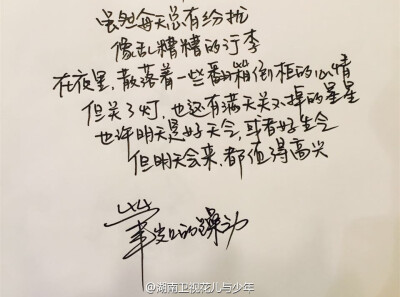 虽然每天总有纷扰
像乱糟糟的行李
在夜里,散落着一些翻箱倒柜的心情
但关了灯,也还有满天关不掉的星星
也许明天是好天气,或者好生气
但明天会来,都值得高兴
华发的躁动
@湖南卫视花儿与少年